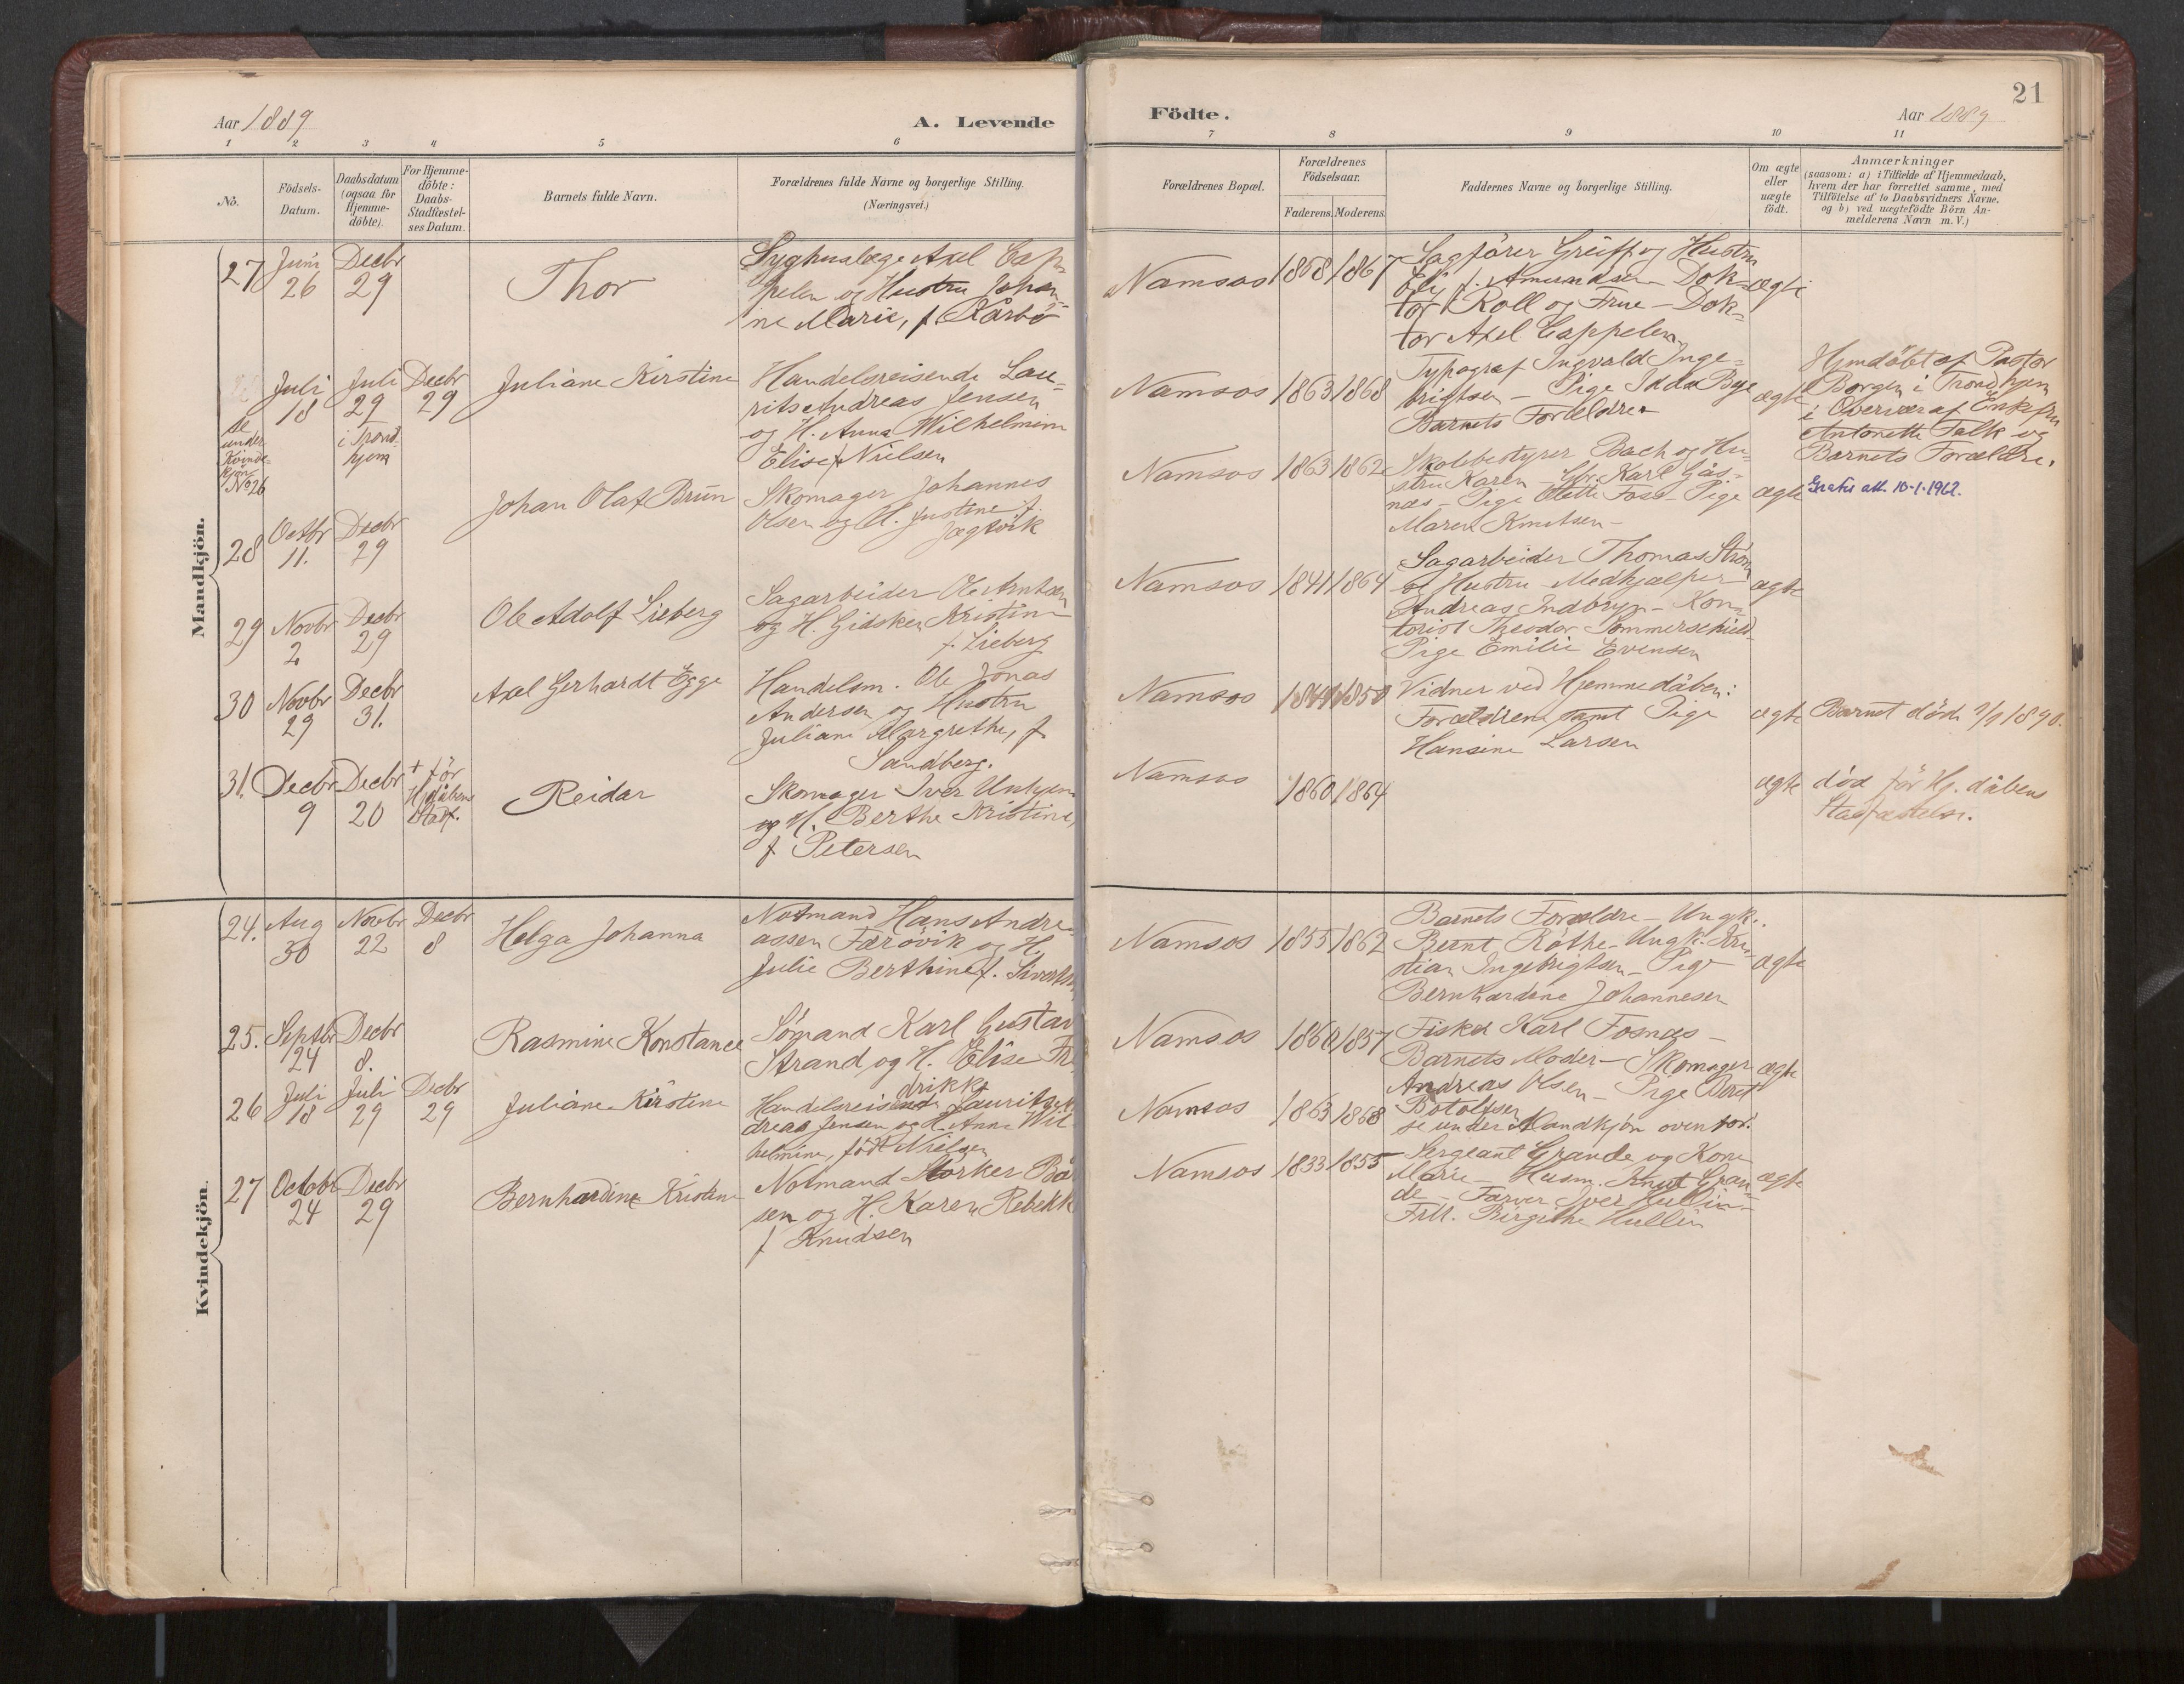 Aar 1889
A. Levende
1 2 3 4 5 6
No.
Födsels-
Datum.
Daabsdatum
(ogsaa for
Hjemme-
döbte).
For Hjemme-
döbte:
Daabs-
Stadfæstel-
ses Datum.
Barnets fulde Navn.
Forældrenes fulde Navne og borgerlige Stilling.
(Næringsvei.)
Mandkjön.
27 Juni Decbr
26 29
Thor
Syghuslæge Axel Cap-
pelen og Hustru Johan-
ne Marie, f. Kårbø
Juli Juli Decbr
18 29 29
i Trond-
hjem
se
under
Kvinde-
kjøn
No 26
Juliane Kirstine
Handelsreisende Lau-
rits Andreas Jensen
og H. Anna Wilhelmine
Elise f. Nielsen
28 Octbr Decbr
11. 29
Johan Olaf Brun
Skomager Johannes
Olsen og H. Justine f.
Jægtvik
29 Novbr Decbr
2 29
Ole Adolf Lieberg
Sagarbeider Ole
og H. Gidsken Kristine
f. Lieberg
30 Novbr Decbr
29 31.
Axel Gerhardt Egge
Handelsm. Ole Jonas
Andersen og Hustru
Juliane Margrethe, f.
Sandberg.
31. Decbr Decbr
9 20
+ för
Hjdåbens
Stadf.
Reidar
Skomager Iver
og H. Berthe Kristine,
f Petersen
Kvindekjön.
24. Aug Novbr Decbr
30 22 8
Helga Johanna
Notmand Hans Andre-
assen Færövik og H.
Julie Berthine f. Sivertsen
25. Septbr Decbr
24 8.
Rasmine Konstance
Sømand Karl Gustav
Strand og H. Elise Fre-
drikke
26 Juli Juli Decbr
18 29 29
Juliane Kirstine
Handelsreisende Laurits An-
dreas Jensen og H. Anna Wil-
helmine, född Nielsen
27 Octobr Decbr
24 29
Bernhardine Kristine
Notmand Storker Bår-
sen og H. Karen Rebekk
f Knudsen
21
Födte.
Aar 1889
7 8 9 10 11
Forældrenes Bopæl.
Forældrenes
Födselsaar.
Faderens. Moderens.
Faddernes Navne og borgerlige Stilling.
Om ægte
eller
uægte
födt.
Anmærkninger
(saasom: a) i Tilfælde af Hjemmedaab,
hvem der har forrettet samme, med
Tilföielse af to Daabsvidners Navne,
og b) ved uægtefödte Börn An-
melderens Navn m. V.)
Namsos 1858 1867
Sagfører Greiff og Hustru
f. Amundsen - Dok-
tor Roll og Frue - Dok-
tor Axel Cappelen
ægte
Namsos 1863 1868
Typograf Ingvald Inge-
brigtsen - Pige Idda Bye
Barnets Forældre
ægte
Hjmdöbt af Pastor
Borgen i Trondhjem
i Overvær af Enkefru
Antonette Falk og
Barnets Forældre.
Namsos 1863 1862
Skolebestyrer Bach og Hu-
stru Karen - Gbr. Karl Gås-
næs - Pige Olette Foss - Pige
Maren Knutsen -
ægte
Gratis att. 10-1-1962.
Namsos 1841 1864
Sagarbeider Thomas Strøm
og Hustru - Medhjælper
Andreas Indbryn - Kon-
torist Theodor Sommerschield
Pige Emilie Evensen
ægte
Namsos 1849 1850
Vidner ved Hjemmedåben:
Forældrene samt Pige
Hansine Larsen
ægte
Barnet död 2/1 1890.
Namsos
1860 1864
ægte
död för Hj. dåbens
Stadfæstelse.
Namsos 1855 1862
Barnets Forældre - Ungk.
Bernt Röthe - Ungk. Kri-
stian Ingebrigtsen - Pige
Bernhardine Johannesen
ægte
Namsos 1860 1857
Fisker Karl Fosnæs -
Barnets Moder - Skomager
Andreas Olsen - Pige Beret
Botolfsen
ægte
Namsos 1863 1868
se under Mandkjön ovenfor.
Namsos 1833 1855
Sergeant Grande og Kone
Marie - Husm. Knut Gran-
de - Farver Iver Hullin -
Frk. Birgithe Hullin
ægte